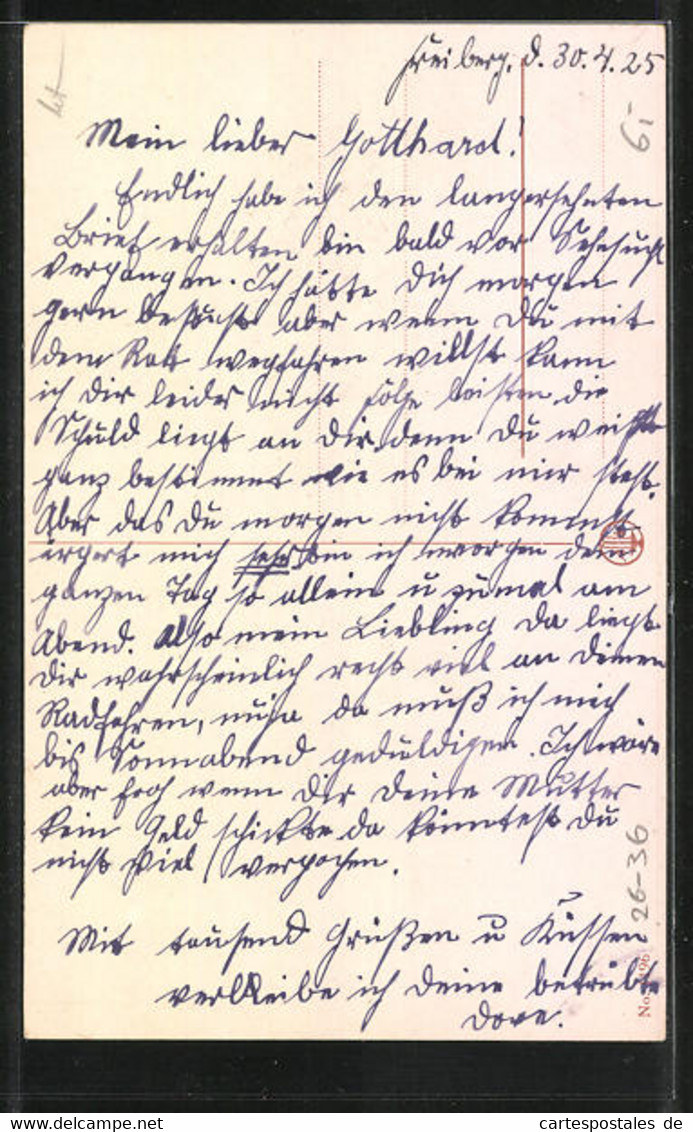 Freiberg, d. 30.4.25
Mein lieber Gotthard!
Endlich habe ich den langersehnten
Brief erhalten bin bald vor Sehnsucht
vergangen. Ich hätte Dich morgen
gern besucht aber wenn Du mit
dem Rad wegfahren willst kann
ich dir leider nicht folge leisten die
Schuld liegt an dir, denn Du weißt
ganz bestimmt wie es bei mir steht.
Aber das du morgen nicht kommst
ärgert mich sehr bin ich morgen den
ganzen Tag so allein u zumal am
Abend. also mein Liebling da liegt
Dir wahrscheinlich recht viel an deinem
Radfahren, nuja da muß ich mich
bis Sonnabend geduldigen. Ich wäre
aber froh wenn dir deine Mutter
kein Geld schickte da könntest Du
nicht viel
Mit tausend Grüßen u Küssen
verbleibe ich deine betrübte
Dora.
6,-
26-36
No.
www.delcampe.net
cartespostales de